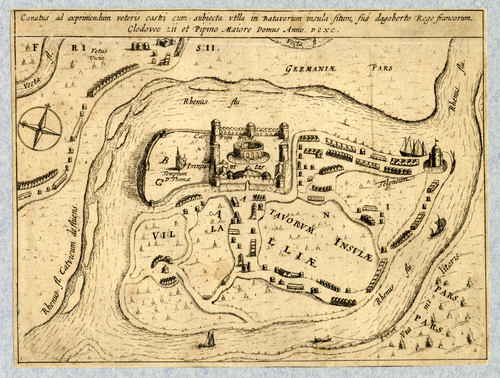 Conatus ad exprimendum veteris castri cum subiecta villa in Batavorum insula situm, sub dagoberto Rege francorum,
Clodoveo III et Pipino Maiore Domus Anno. DCXC.
F R I S II.
Vetus
Vecta
Vecta fl.
GERMANIÆ PARS
Rhenus flu
Rhenus flu
B
G
Templum
D. Thomæ
Teloneum
VIL LA
A N I
TAVORVM
INSVLÆ
LLIÆ
Rhenus fl. Catticum defluens
Rhenus flu
litoris
PARS
PARS